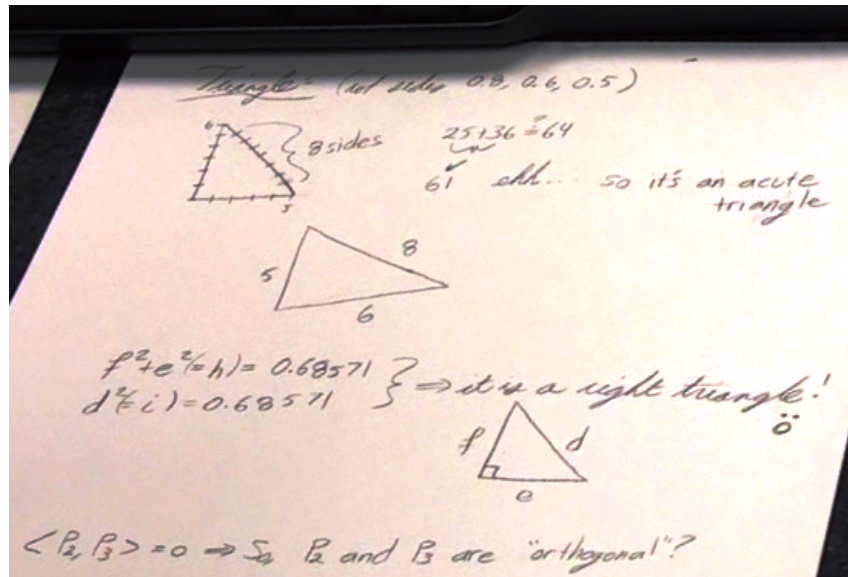 Triangle: (w/ sides 0.8, 0.6, 0.5)
6
8 sides
5
25+36 ≟ 64
61 ehh... so it's an acute
triangle
5
8
6
f²+e²(=h)= 0.68571
d²(=i)=0.68571
⇒ it is a right triangle!
f
d
e
<P₂, P₃> = 0 ⇒ So P₂ and P₃ are "orthogonal"?